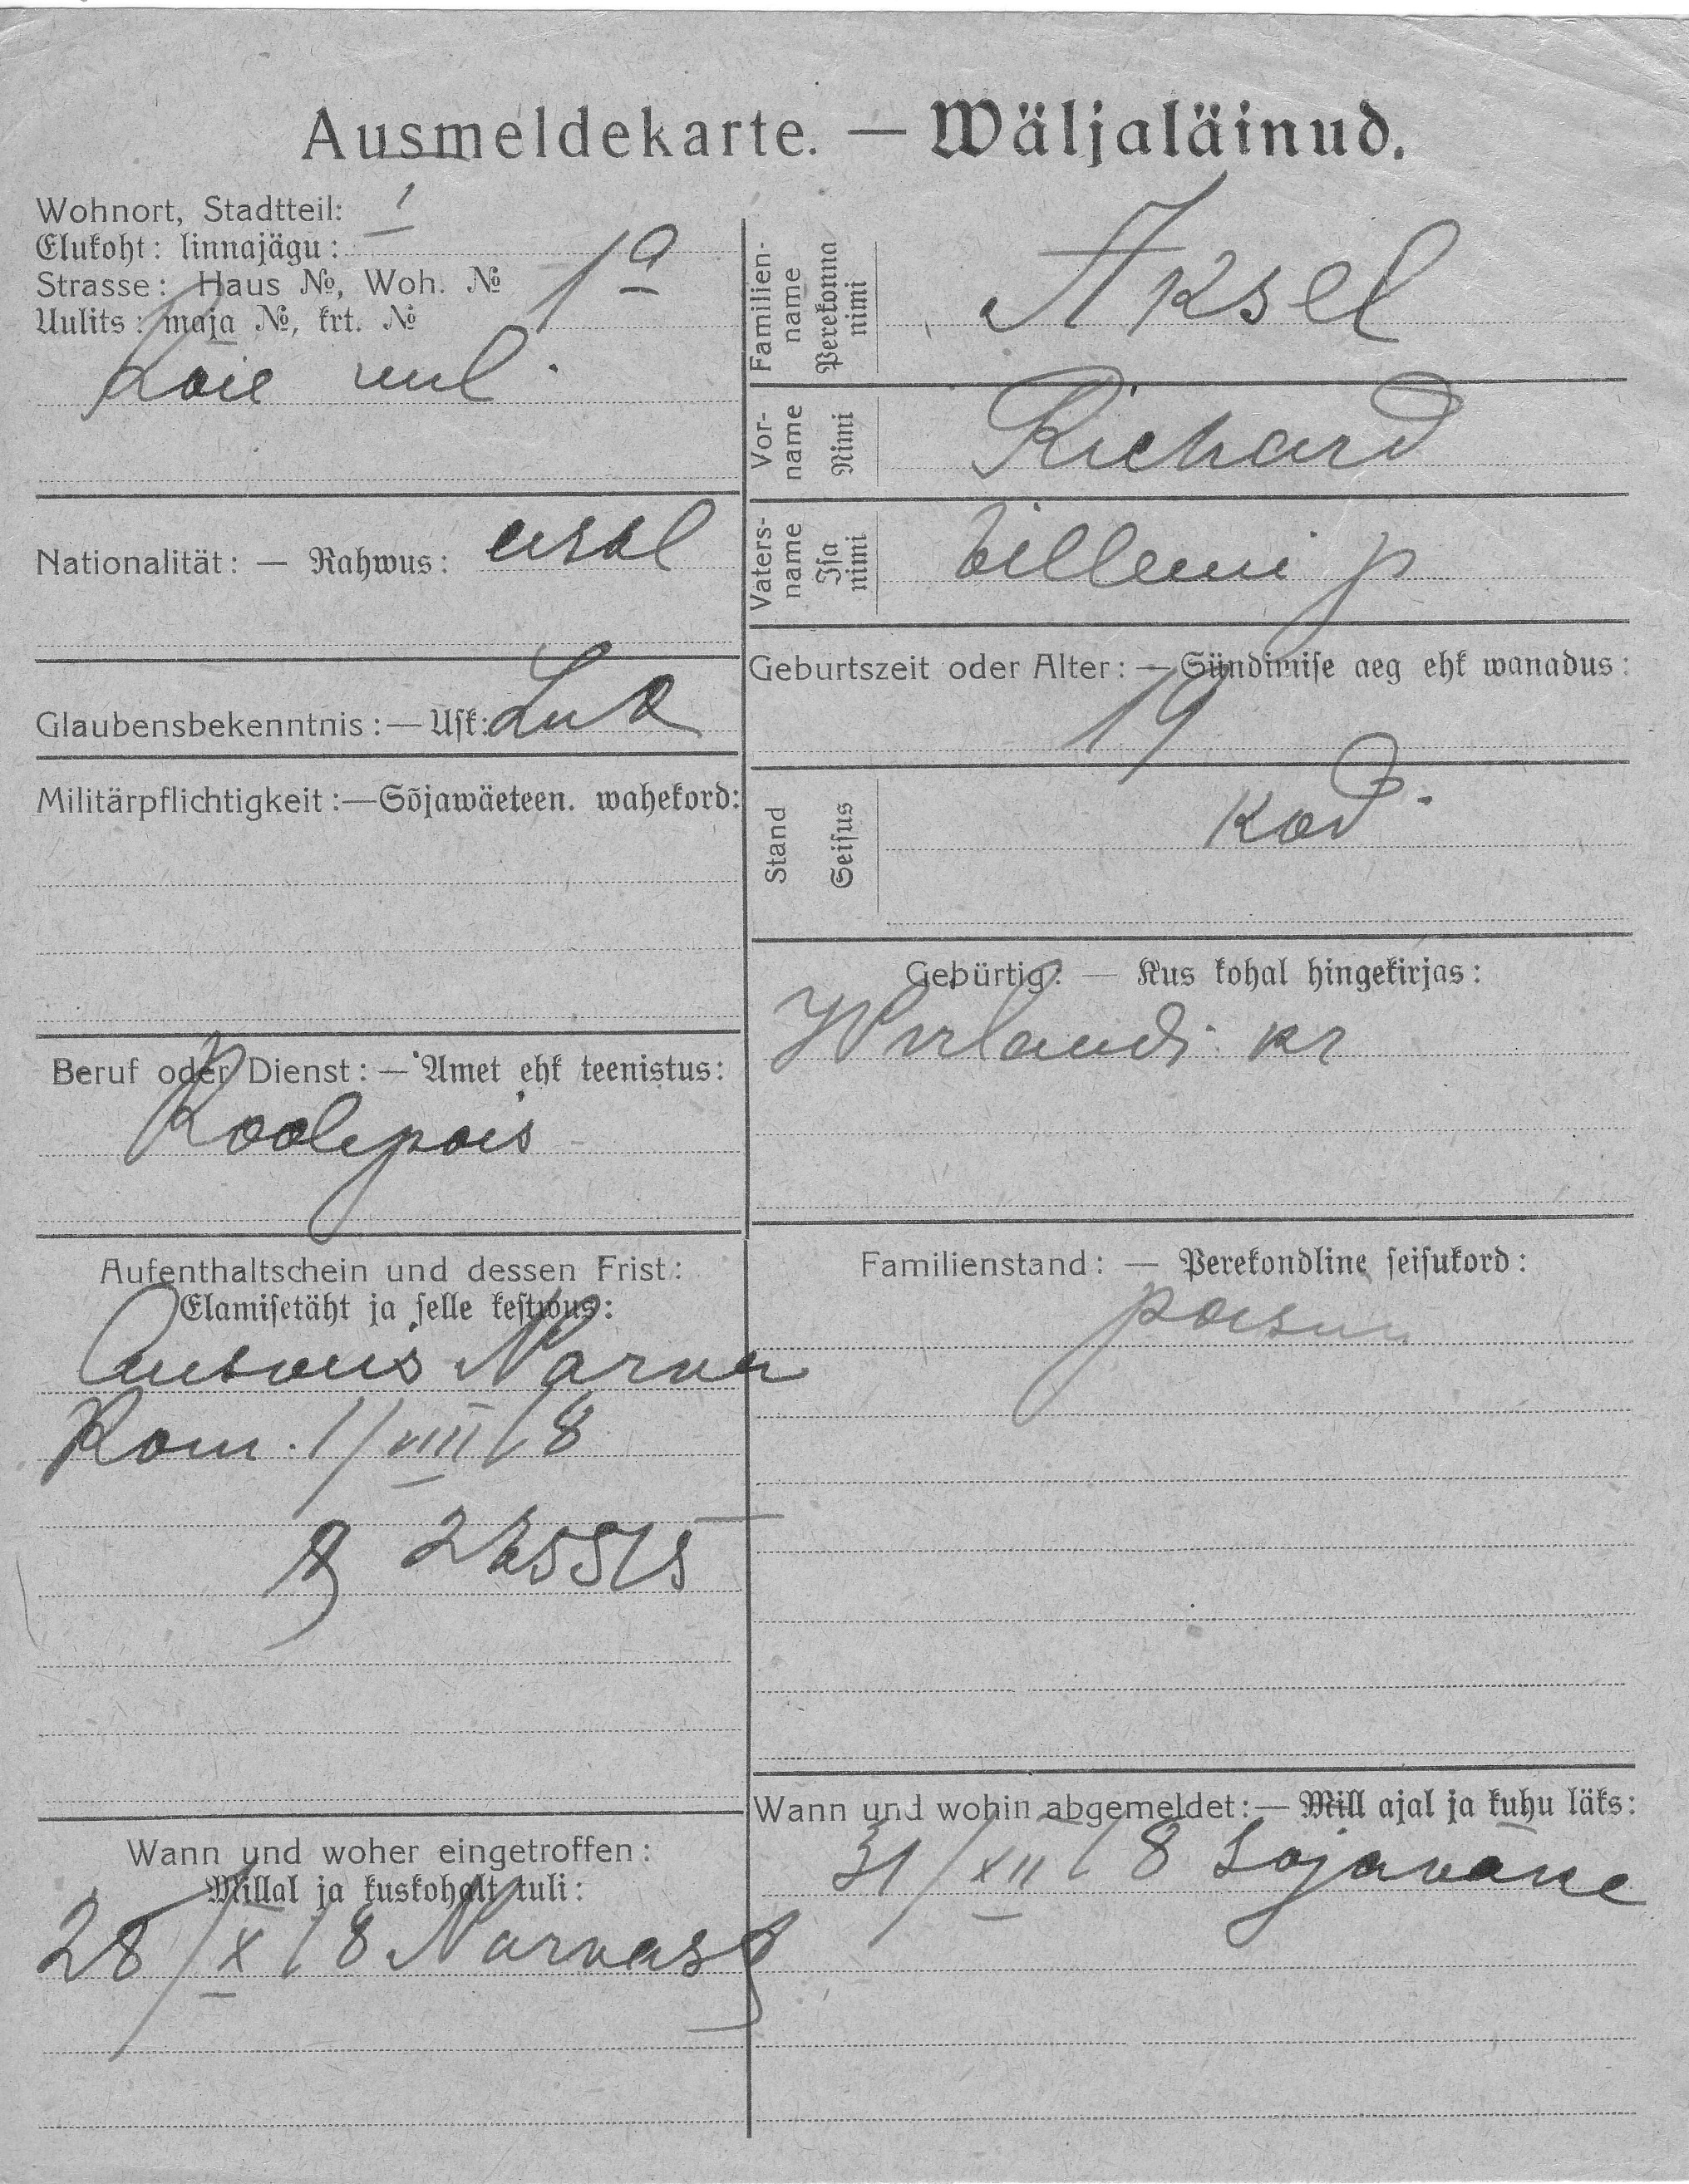 Ausmeldekarte. — Wäljaläinud.
Wohnort, Stadtteil: I
Elukoht: linnajägu:
Strasse: Haus №, Woh. № 1a
Uulits: maja №, krt. №
uul.
Nationalität: — Rahwus:
Glaubensbekenntnis: — Usk: Lut
Militärpflichtigkeit: — Sõjawäeteen. wahekord:
Beruf oder Dienst: — Amet ehk teenistus:
Koolipois
Aufenthaltschein und dessen Frist:
Elamisetäht ja selle kestwus:
Ausweis Narva
Kom. 1/VIII 18
Wann und woher eingetroffen:
Millal ja kuskohalt tuli:
28/X 18 Narvast
Familien-name Perekonna nimi Aksel
Vor-name Nimi Richard
Vaters-name Isa nimi Villemi p
Geburtszeit oder Alter: — Sündimise aeg ehk wanadus:
19
Stand Seisus kod.
Gebürtig: — Kus kohal hingekirjas:
Wirlandi kr
Familienstand: — Perekondline seisukord:
Wann und wohin abgemeldet: — Mill ajal ja kuhu läks:
31/XII 18 Sojavåne